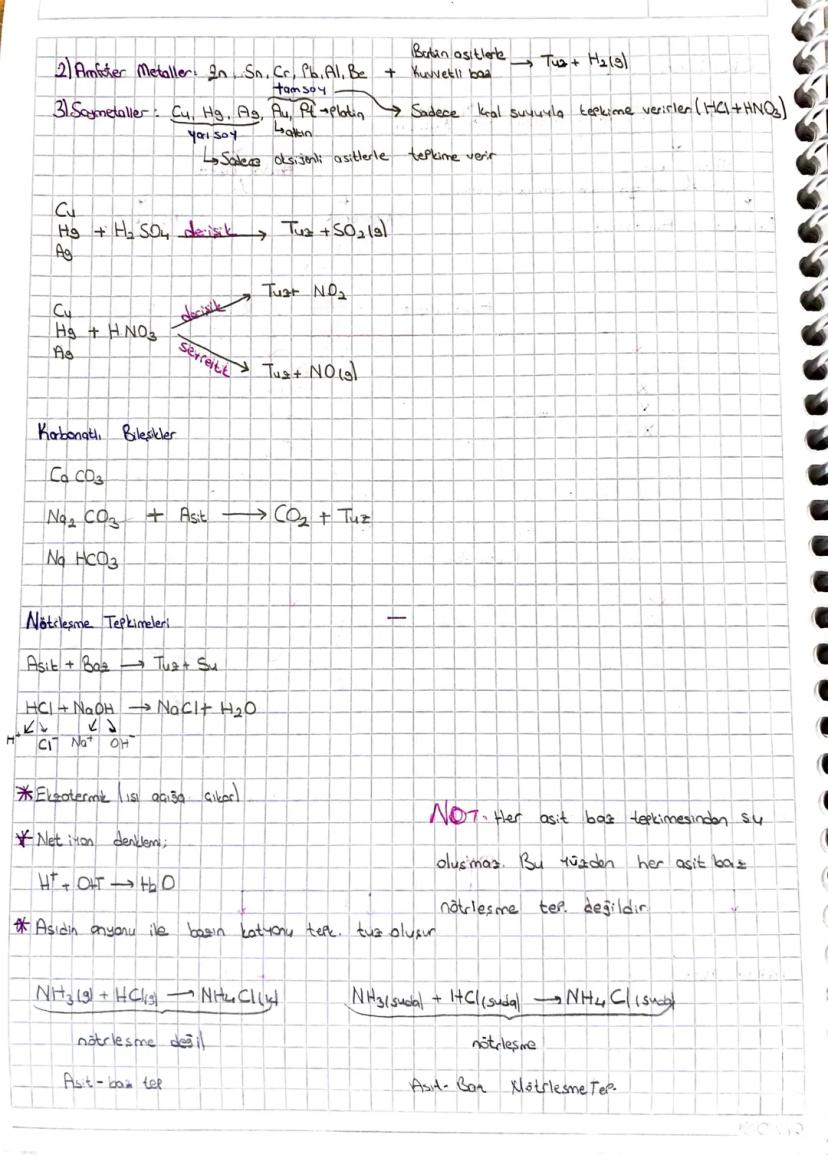 2) Amfoter Metaller: Zn, Sn, Cr, Pb, Al, Be + Bütün asitlerle Kuvvetli baz → Tuz + H₂(g)
tamsoy
3) Soymetaller: Cu, Hg, Ag, Au, Pt → platin → Sadece kral suyuyla tepkime verirler (HCl + HNO₃)
yarı soy ↳ altın
↳ Sadece oksijenli asitlerle tepkime verir
Cu
Hg + H₂SO₄ derişik → Tuz + SO₂(g)
Ag
derişik → Tuz + NO₂
Cu
Hg + HNO₃
Ag
seyreltik → Tuz + NO(g)
Karbonatlı Bileşikler
CaCO₃
Na₂CO₃ + Asit → CO₂ + Tuz
NaHCO₃
Nötrleşme Tepkimeleri
Asit + Baz → Tuz + Su
HCl + NaOH → NaCl + H₂O
H⁺ Cl⁻ Na⁺ OH⁻
* Ekzotermik (ısı açığa çıkar)
* Net iyon denklemi;
H⁺ + OH⁻ → H₂O
* Asidin anyonu ile bazın katyonu tepk. tuz oluşur
NOT: Her asit baz tepkimesinden su
oluşmaz. Bu yüzden her asit baz
nötrleşme tep. değildir.
NH₃(g) + HCl(g) → NH₄Cl(k)
nötrleşme değil
Asit-baz tep
NH₃(suda) + HCl(suda) → NH₄Cl(suda)
nötrleşme
Asit-Baz Nötrleşme Tep.